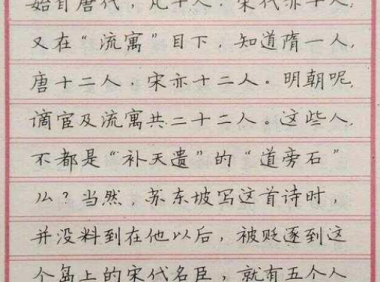 始自唐代，凡十人．宋代亦十人，
又在“流寓”目下，知道隋一人，
唐十二人．宋亦十二人．明朝呢，
谪宦及流寓共二十二人。这些人，
不都是“补天遗”的“道旁石”
么？当然，苏东坡写这首诗时，
并没料到在他以后，被贬逐到这
个岛上的宋代名臣，就有五个人